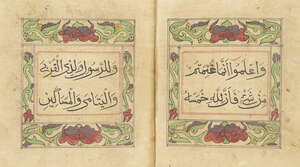 وَاعْلَمُوا أَنَّمَا غَنِمْتُمْ
مِنْ شَيْءٍ فَأَنَّ لِلَّهِ خُمُسَهُ
وَلِلرَّسُولِ وَلِذِي الْقُرْبَى
وَالْيَتَامَى وَالْمَسَاكِينِ